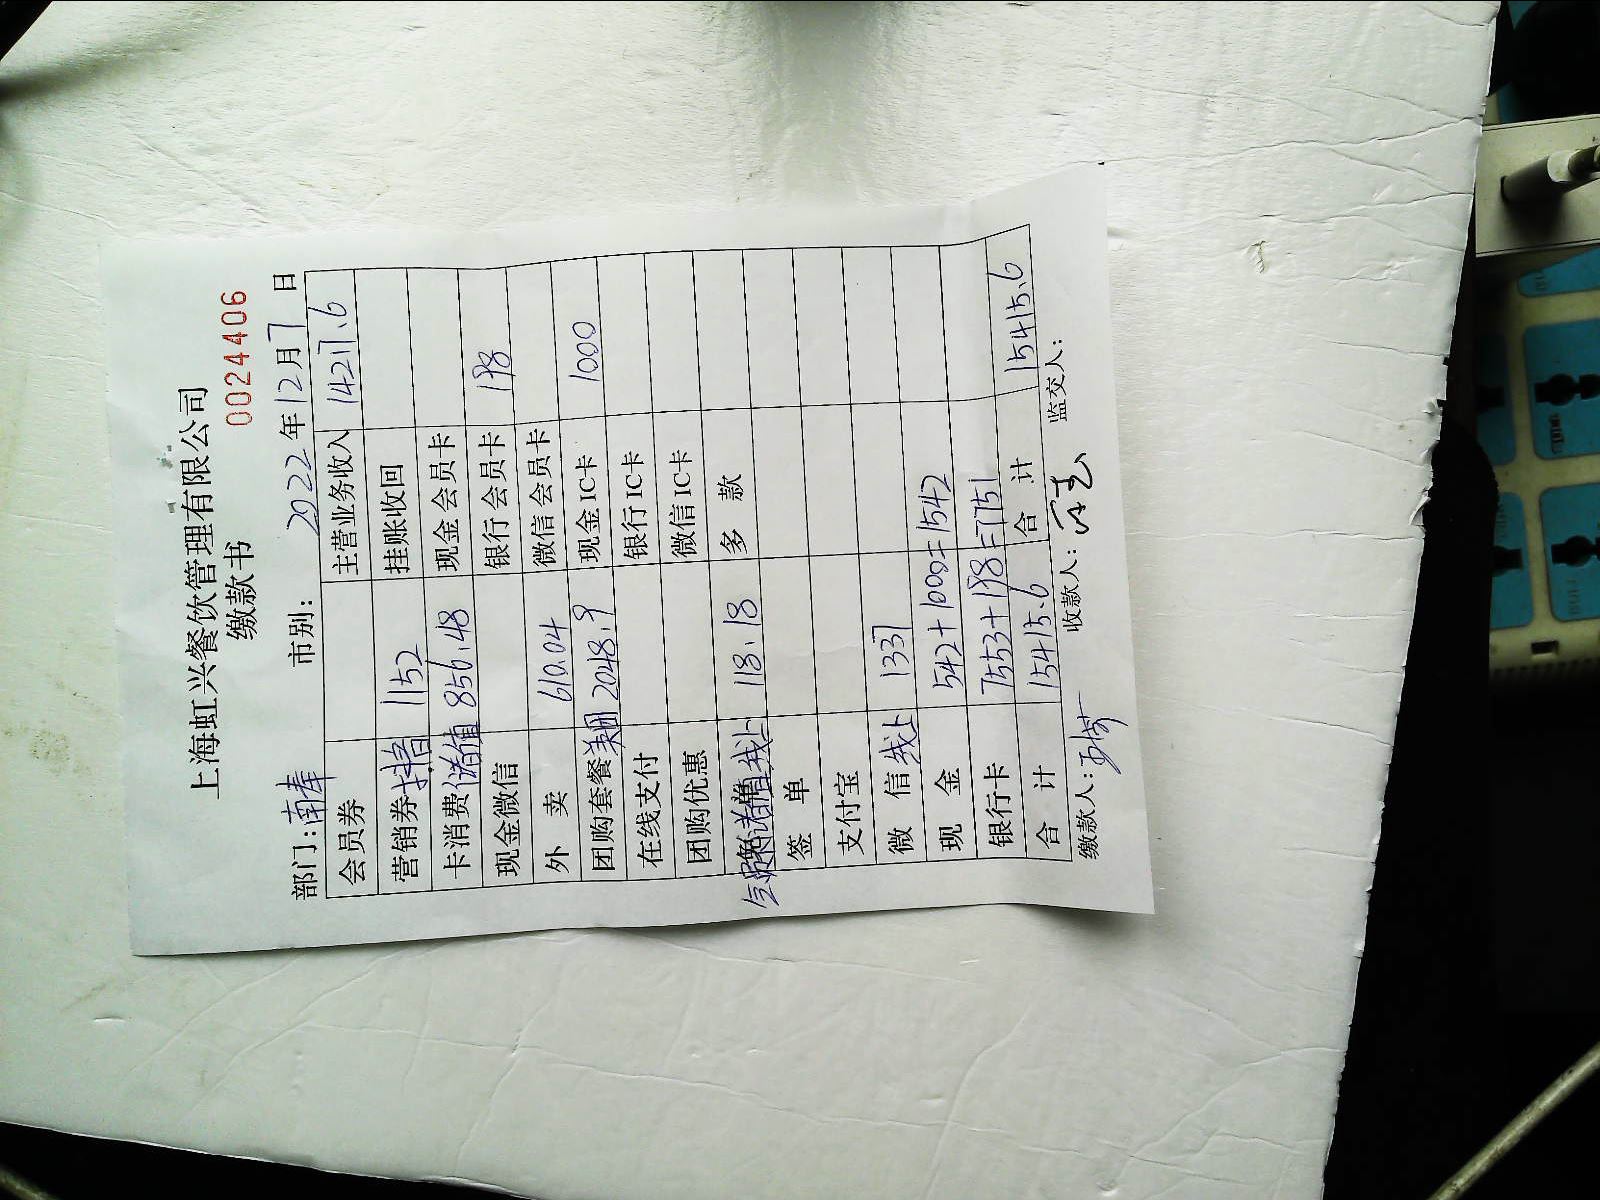 上海虹兴餐饮管理有限公司
缴款书 0024406
部门:南奉 市别: 2022年12月7日
会员券 主营业务收入 14217.6
营销券 1152 挂账收回
卡消费储值 856.48 现金会员卡
现金微信 银行会员卡 198
外 卖 610.04 微信会员卡
团购套餐美团 2048.9 现金IC卡 1000
在线支付 银行IC卡
团购优惠 微信IC卡
储值线上 118.18 多 款
签 单
支付宝
微 信线上 1337
现 金 542+1000=1542
银行卡 7553+198=7751
合 计 15415.6 合 计 15415.6
缴款人: 收款人: 监交人: